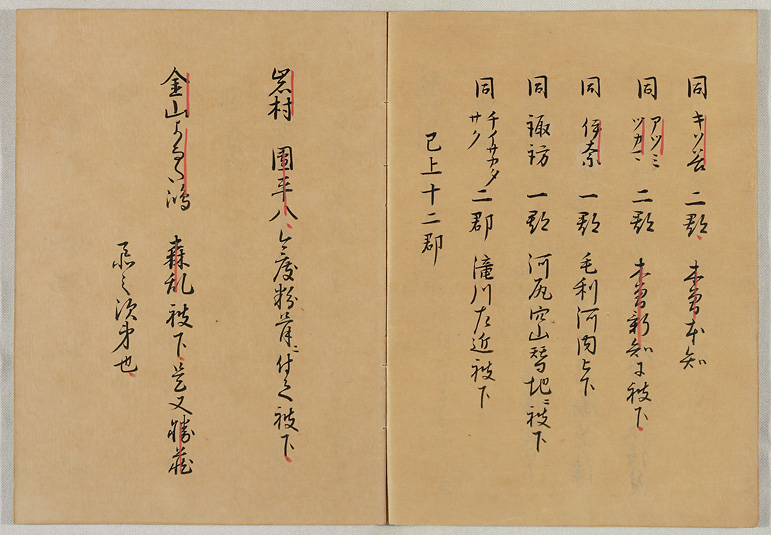 同 キソ谷 二郡 木曽本知
同 アツミ ツカマ 二郡 木曽新知に被下
同 伊奈 一郡 毛利河内被下
同 諏訪 一郡 河尻穴山替地ニ被下
同 チイサカタ サク 二郡 滝川左近被下
已上十二郡
岩村 団平八今度粉骨ニ付て被下
金山よなた嶋 森乱被下是又勝蔵
忝次第也